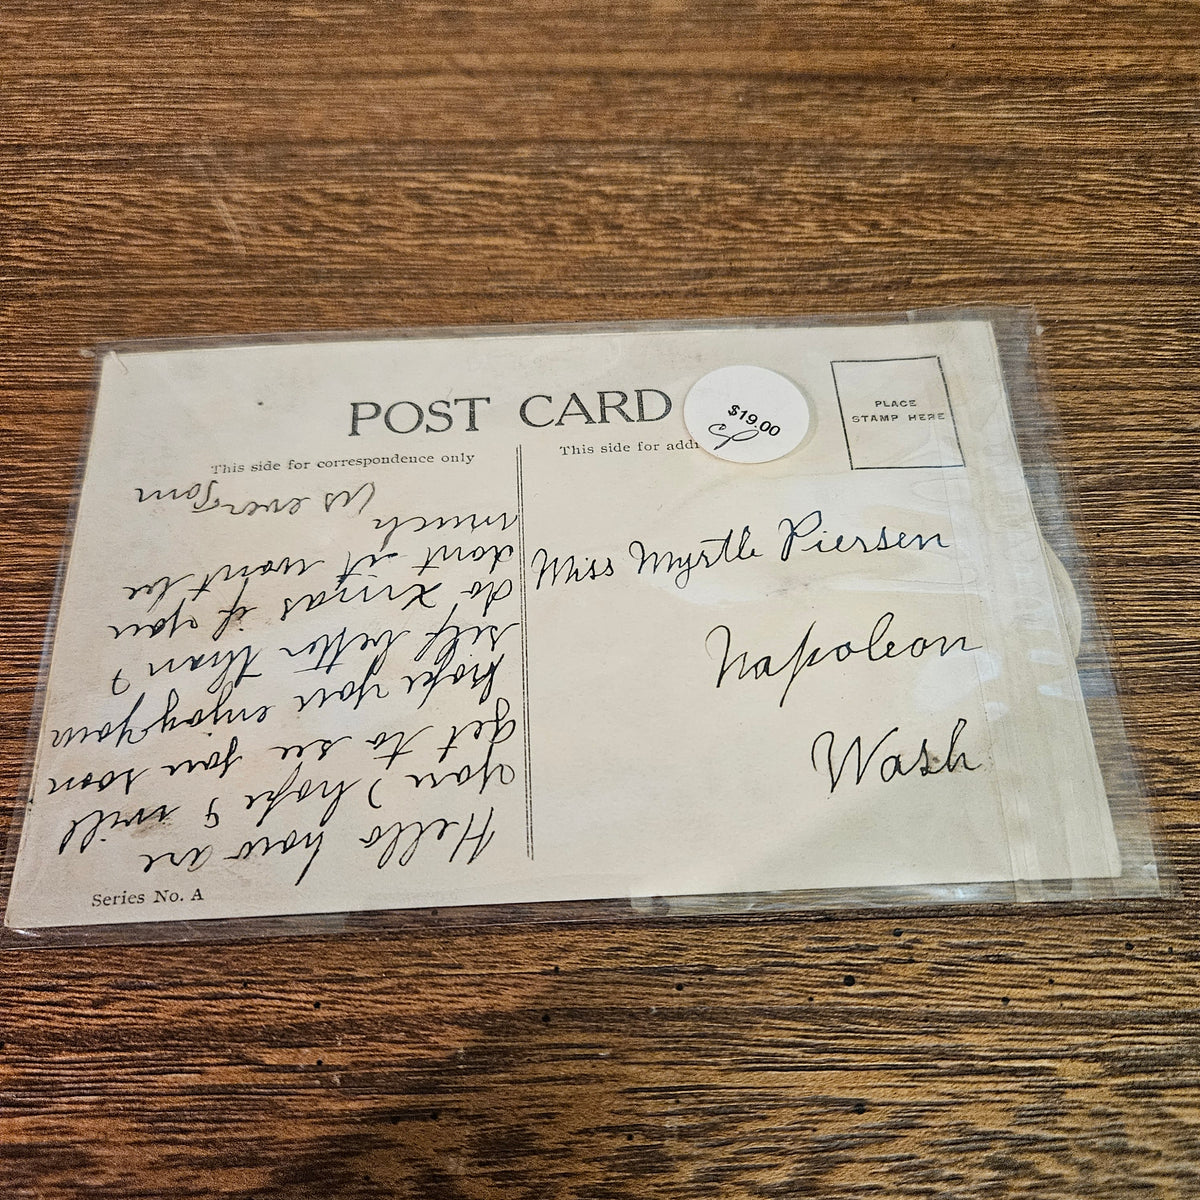 POST CARD
$19.00
PLACE
STAMP HERE
This side for correspondence only
This side for addr
Hello how are
you) hope I will
get to see you soon
hope you enjoy your
self better than I
do Xmas if you
dont it wont be
much
As ever Tom
Miss Myrtle Piersen
Napoleon
Wash
Series No. A